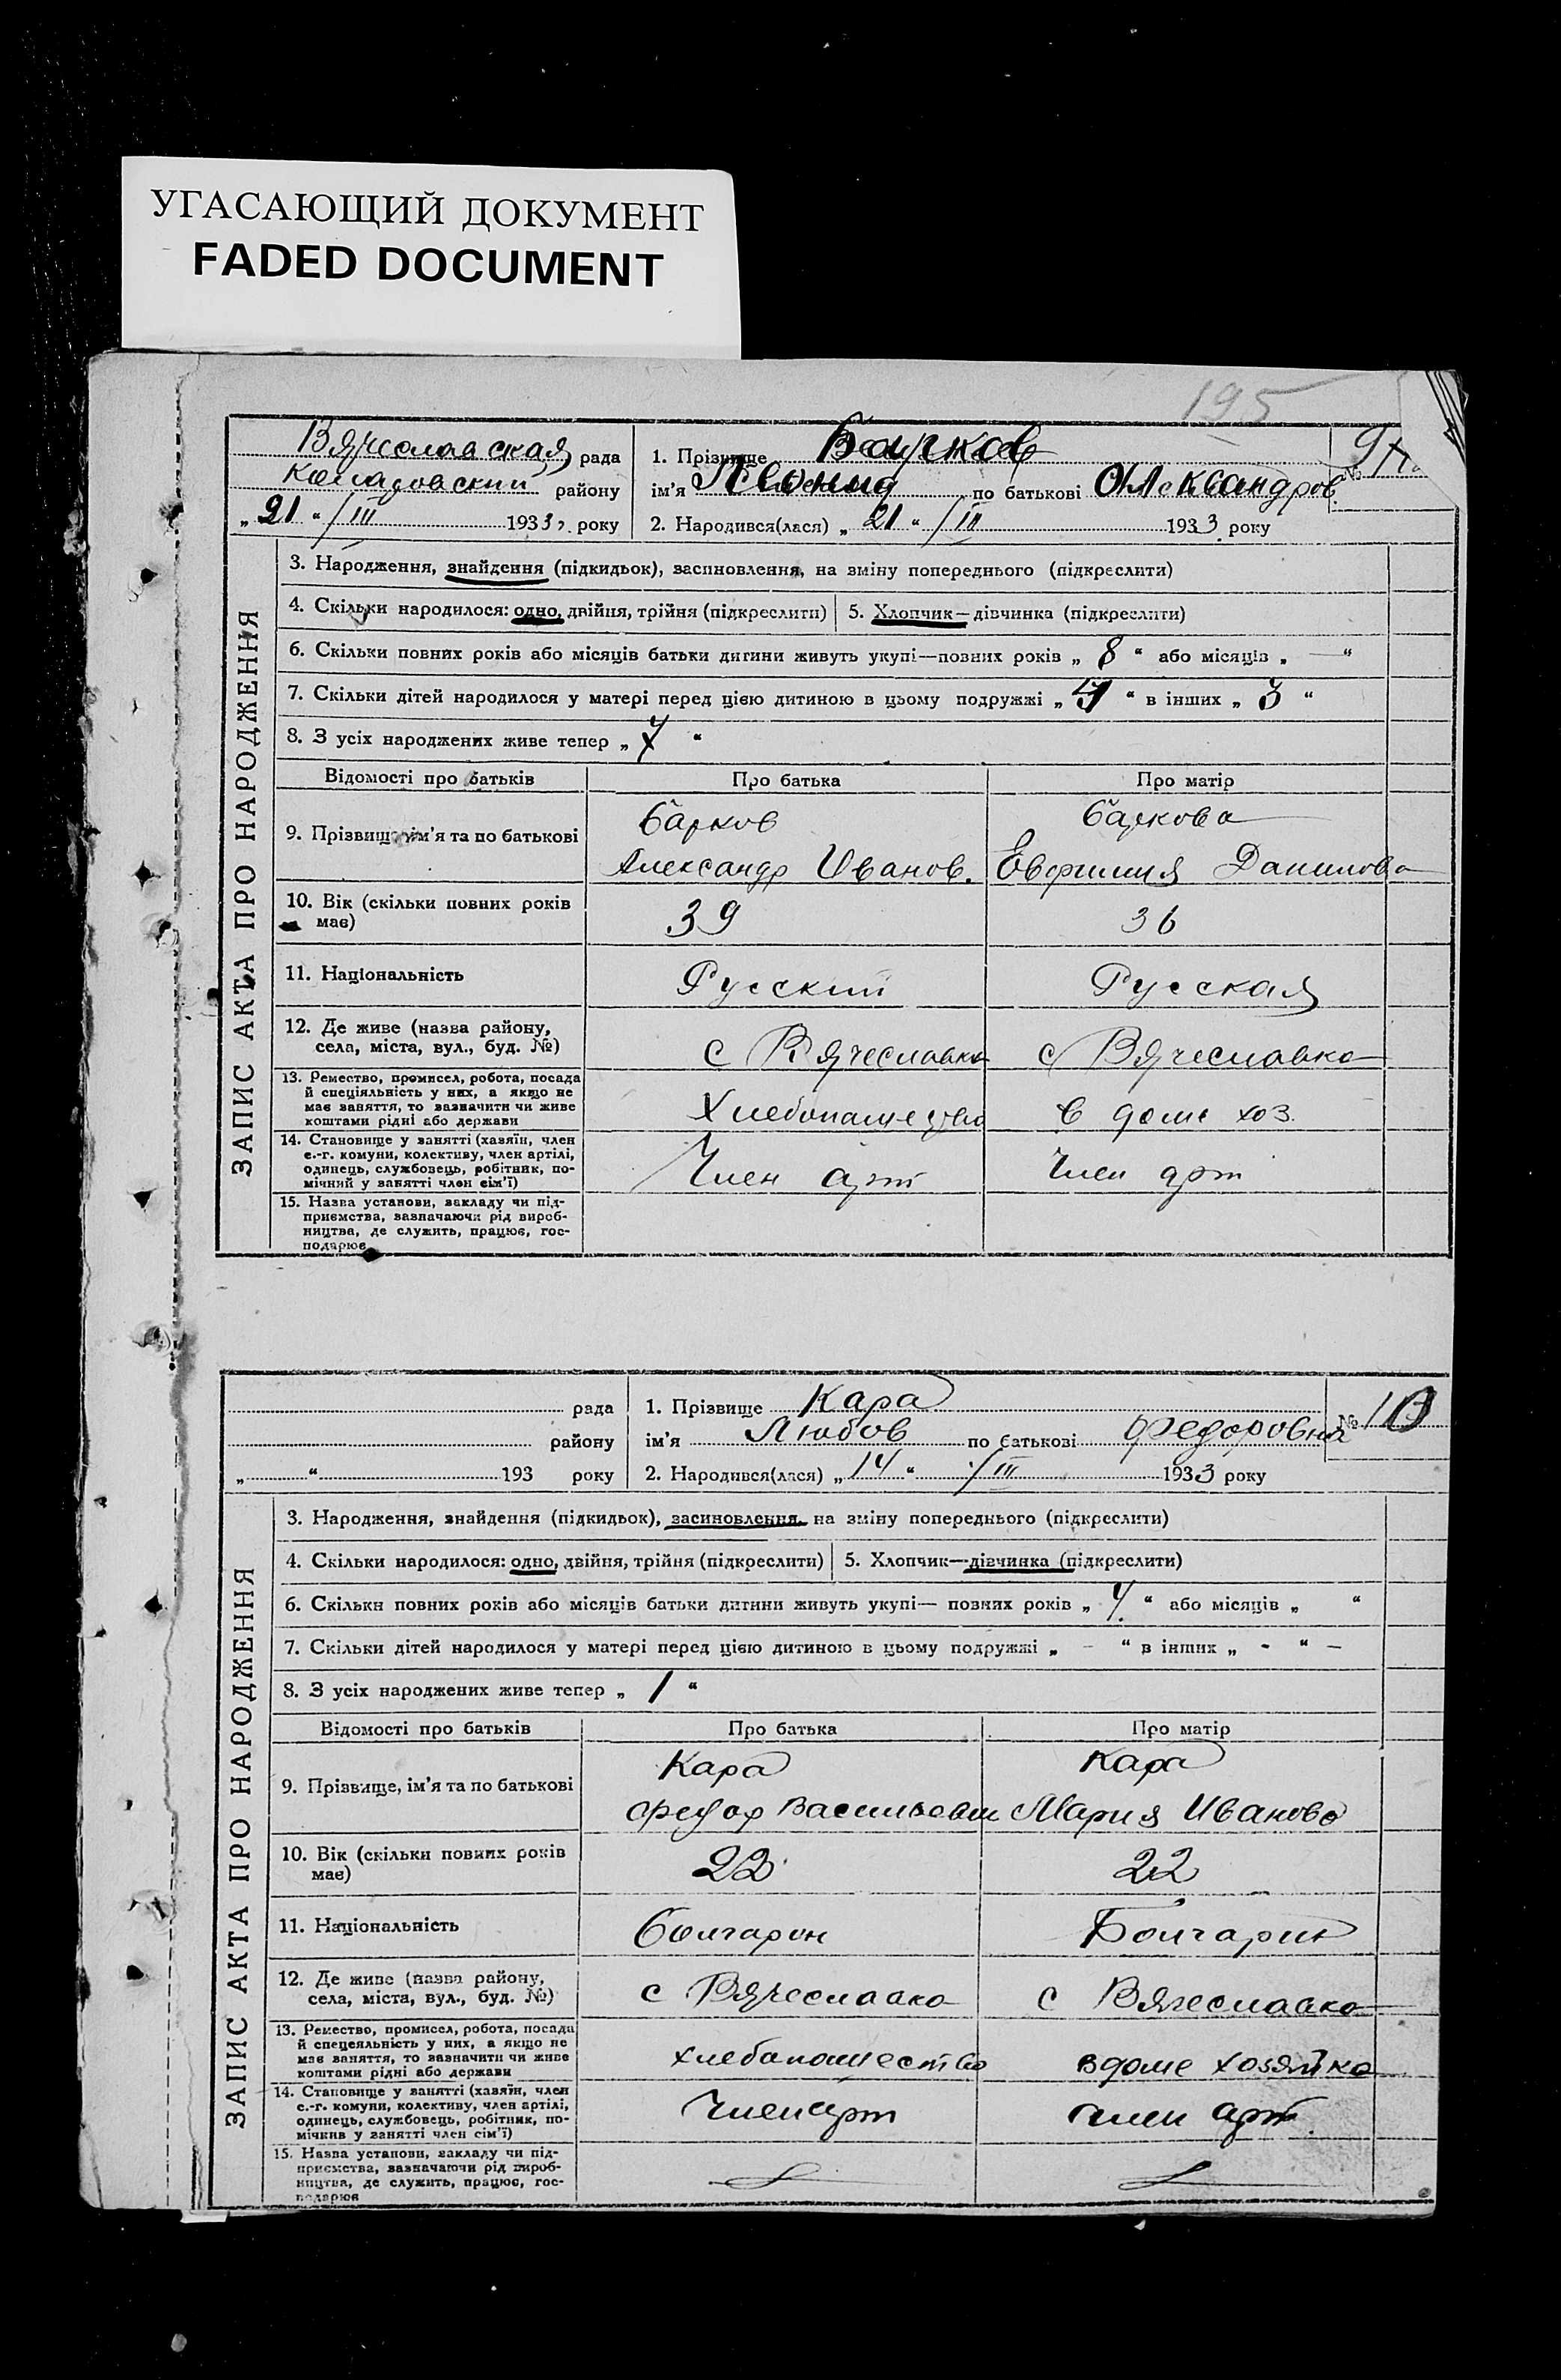 УГАСАЮЩИЙ ДОКУМЕНТ
FADED DOCUMENT
195
Вячеславская рада
район
„21“ /III 1933 року
1. Прізвище Барков
ім'я Леонид по батькові Олександров.
2. Народився(лася) „21“ /III 1933 року
№ 9
ЗАПИС АКТА ПРО НАРОДЖЕННЯ
3. Народження, знайдення (підкидьок), засиновлення, на зміну попереднього (підкреслити)
4. Скільки народилося: одно, двійня, трійня (підкреслити)
5. Хлопчик—дівчинка (підкреслити)
6. Скільки повних років або місяців батьки дитини живуть укупі—повних років „8“ або місяців „—“
7. Скільки дітей народилося у матері перед цією дитиною в цьому подружжі „ “ в інших „3“
8. З усіх народжених живе тепер „ “
Відомості про батьків
Про батька
Про матір
9. Прізвище, ім'я та по батькові
Барков
Александр Иванов.
Баркова
Евфимия Данилова
10. Вік (скільки повних років має)
39
36
11. Національність
Русский
Русская
12. Де живе (назва району, села, міста, вул., буд. №)
с Вячеславка
с Вячеславка
13. Ремество, промисел, робота, посада
й спеціяльність у них, а якщо не
має заняття, то зазначити чи живе
коштами рідні або держави
Хлебопашество
в доме хоз.
14. Становище у занятті (хазяїн, член
с.-г. комуни, колективу, член артілі,
одинець, службовець, робітник, по-
мічний у занятті член сім'ї)
Член арт
Член арт
15. Назва установи, закладу чи під-
приємства, зазначаючи рід вироб-
ництва, де служить, працює, гос-
подарює
рада
району
„ “ 193 року
1. Прізвище Кара
ім'я Любов по батькові Федоровна
2. Народився(лася) „14“ /III 1933 року
№ 10
ЗАПИС АКТА ПРО НАРОДЖЕННЯ
3. Народження, знайдення (підкидьок), засиновлення, на зміну попереднього (підкреслити)
4. Скільки народилося: одно, двійня, трійня (підкреслити)
5. Хлопчик—дівчинка (підкреслити)
6. Скільки повних років або місяців батьки дитини живуть укупі— повних років „ “ або місяців „ “
7. Скільки дітей народилося у матері перед цією дитиною в цьому подружжі „ - “ в інших „ - “ —
8. З усіх народжених живе тепер „1“
Відомості про батьків
Про батька
Про матір
9. Прізвище, ім'я та по батькові
Кара
Федор Васильевич
Кара
Мария Иванова
10. Вік (скільки повних років має)
22
22
11. Національність
Болгарин
Болгарин
12. Де живе (назва району, села, міста, вул., буд. №)
с Вячеславка
с Вячеславка
13. Ремество, промисел, робота, посада
й спецеяльність у них, а якщо не
має заняття, то зазначити чи живе
коштами рідні або держави
хлебопашество
в доме хозяйка
14. Становище у занятті (хазяїн, член
с.-г. комуни, колективу, член артілі,
одинець, службовець, робітник, по-
мічник у занятті член сім'ї)
Член арт
член арт.
15. Назва установи, закладу чи під-
приємства, зазначаючи рід вироб-
ництва, де служить, працює, гос-
подарює